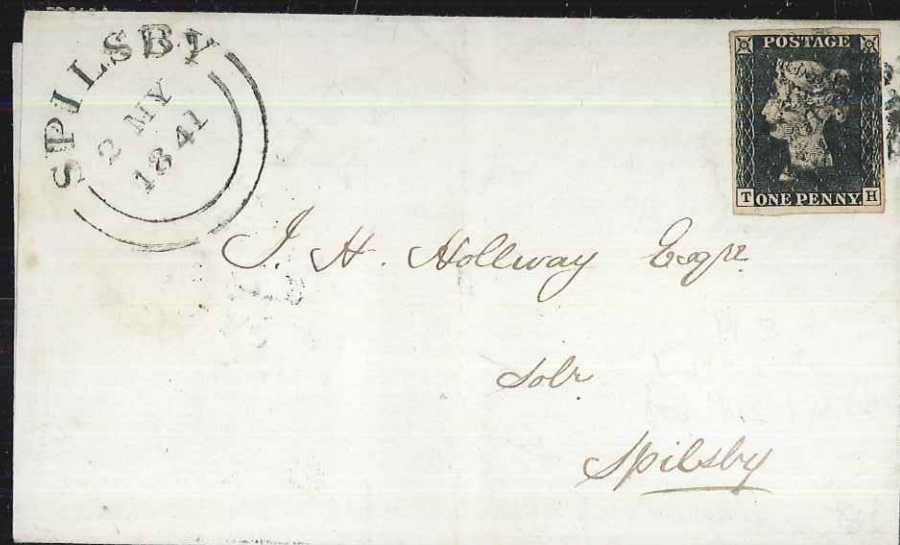 SPILSBY
2 MY
1841
POSTAGE
T ONE PENNY H
J. H. Hollway Esqre
Solr
Spilsby